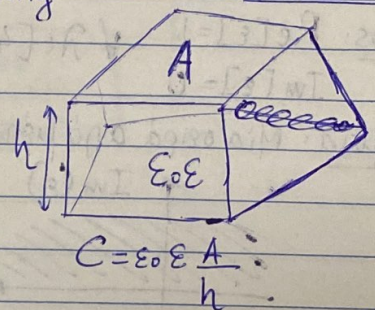 A
h
ε₀ε
C = ε₀ε A/h